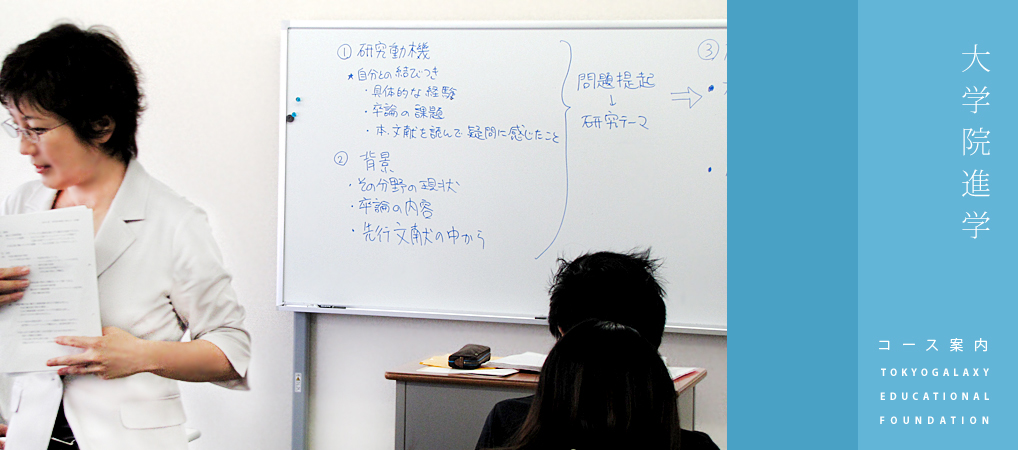 ① 研究動機
★自分との結びつき
・具体的な経験
・卒論の課題
・本、文献を読んで疑問に感じたこと
② 背景
・その分野の現状
・卒論の内容
・先行文献の中から
問題提起
↓
研究テーマ
⇒
③
大学院進学
コース案内
TOKYOGALAXY
EDUCATIONAL
FOUNDATION